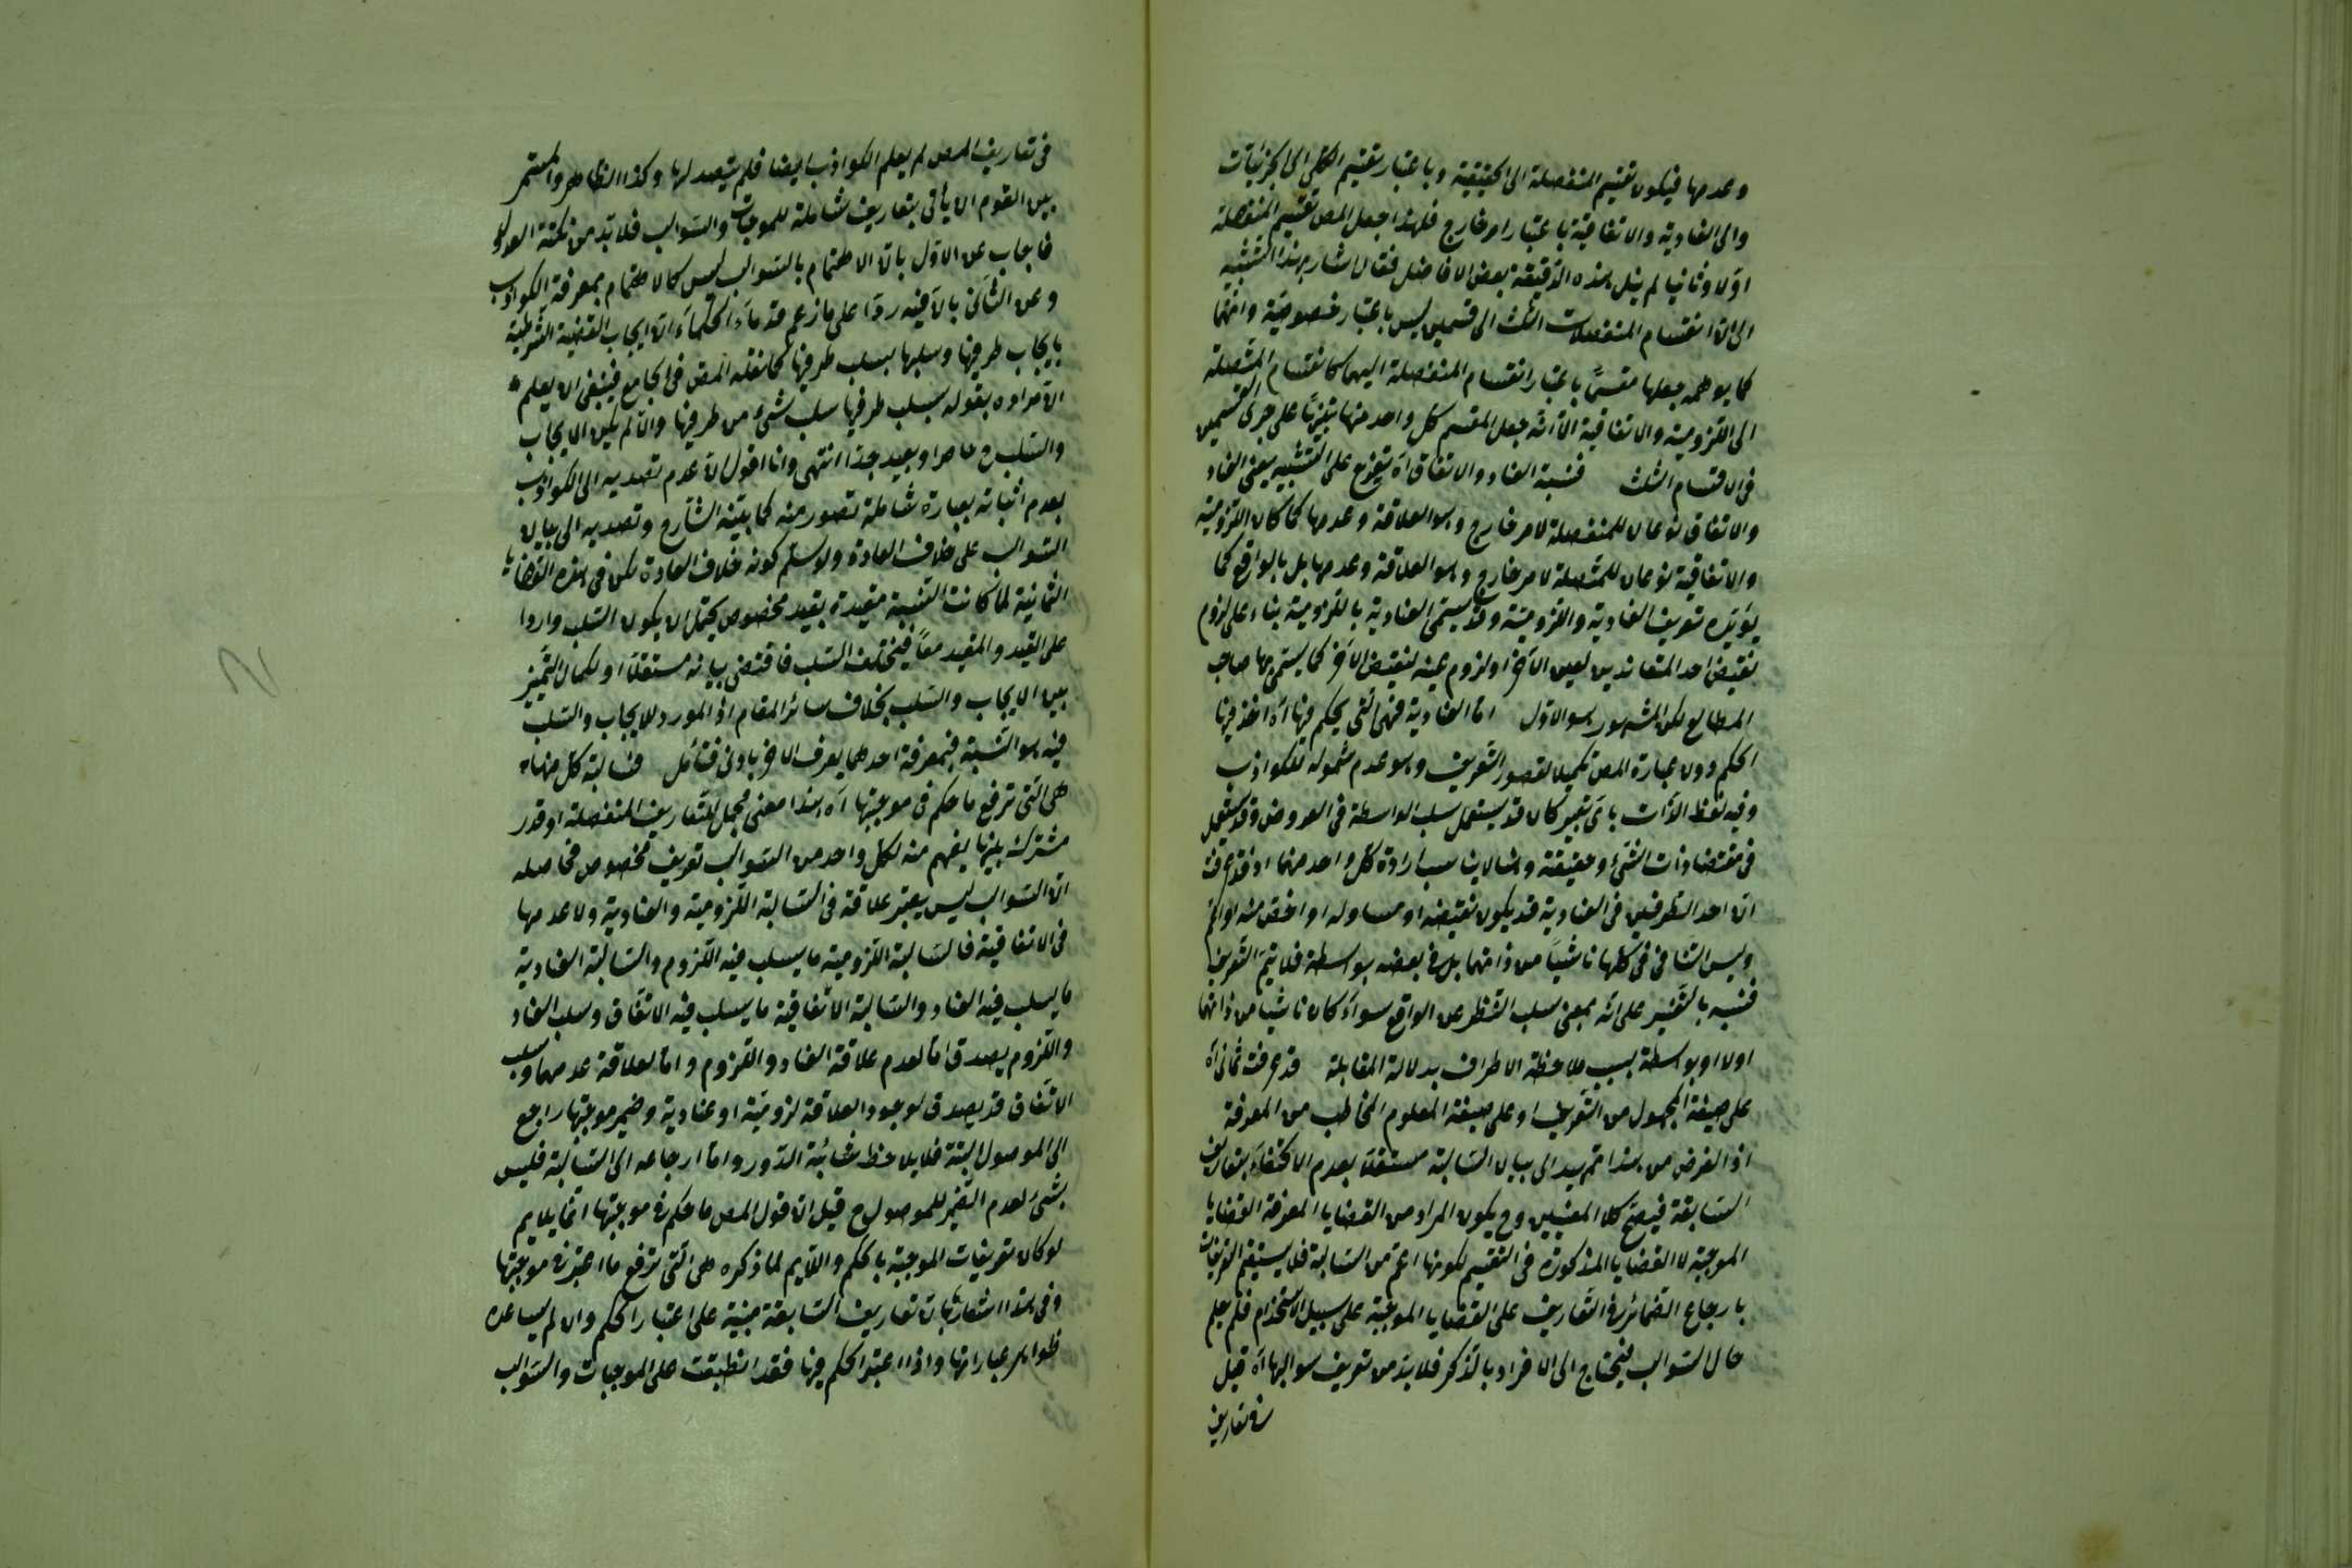 وعدمها فيكون تقسيم المنفصلة الى الحقيقية وباعتبار تقسيم الكلى الى الجزئيات
والى العنادية والاتفاقية باعتبار امر خارج فلهذا جعل المص تقسيم المنفصلة
اولا وثانيا لم ينل بهذه الدقيقة بعض الافاضل فقال اشار بهذا التشبيه
الى ان انقسام المنفصلات الثلث الى قسمين ليس باعتبار خصوصية وانما
كما يوهمه جعلها مقسما باعتبار انقسام المنفصلة اليهما كانقسام المتصلة
الى اللزومية والاتفاقية الا انه جعل المقسم كل واحد منها تنبيها على جرى القسمين
فى الاقسام الثلث فنسبة العناد والاتفاق آه تفريع على التشبيه يعنى العناد
والاتفاق نوعان للمنفصلة لامر خارج وهو العلاقة وعدمها كما كان اللزومية
والاتفاقية نوعان للمتصلة لامر خارج وهو العلاقة وعدمها بل بالواقع كما
يؤيده تعريف العنادية واللزومية وقد يسمى العنادية باللزومية بناء على لزوم
نقيض احد المتعاندين لعين الآخر او لزوم عينه لنقيض الآخر كما يسمى بها صاحب
المطالع لكن المشهور هو الاول اما العنادية فهى التى يحكم فيها آه اخذ فيها
الحكم دون عبارة المص تكميلا لقصور التعريف وهو عدم شموله للكواذب
وفيه لفظ الذات باى تعبير كان قد يستعمل سلب الواسطة فى العروض وقد يستعمل
فى مقتضا ذات الشئ وحقيقته ارادة كل واحد منهما اذ قد عرفت
ان احد الطرفين فى العنادية قد يكون نقيضه او مساو له او اخص منه او اعم
وليس التنافى فى كلها ناشيا من ذاتهما بل فى بعضه بواسطة فلا يتم التعريف
فنبه بالتفسير على انه بمعنى سلب النظر عن الواقع سواء كان ناشيا من ذاتهما
اولا او بواسطة بسبب ملاحظة الاطراف بدلالة المقابلة قد عرفت ثمانى آه
على صيغة المجهول من التعريف او على صيغة المعلوم المخاطب من المعرفة
اذ الغرض من هذا تمهيد الى بيان السالبة مستقلا بعدم الاكتفاء بتعاريف
السابقة فيصح كلا المعنيين وح يكون المراد من القضايا المعرفة القضايا
الموجبة لا القضايا المذكورة فى التقسيم لكونها اعم من السالبة فلا يستقيم التعريفات
بارجاع الضمائر فى التعاريف على القضايا الموجبة على سبيل الاستخدام فلم يعلم
حال السوالب فيحتاج الى الافراد بالذكر فلا بد من تعريف سوالبها آه قيل
فى تعاريف
فى تعاريف المص لم يعلم الكواذب ايضا فلم يتصد لها وكذا الظاهر والمستمر
بين القوم ان يأتى بتعاريف شاملة للموجبات والسوالب فلا بد من نكتة العدول
فاجاب عن الاول بان الاهتمام بالسوالب ليس كالاهتمام بمعرفة الكواذب
وعن الثانى بان فيه ردا على ما زعم قدماء الحكماء ان ايجاب القضية الشرطية
بايجاب طرفيها وسلبها بسلب طرفيها كما نقله المص فى الجامع فينبغى ان يعلم
ان مراده بقوله بسلب طرفيها سلب شئ من طرفيها وان لم يكن الايجاب
والسلب ح حاصرا وبعيد جدا انتهى وانا اقول ان عدم تصديه الى الكواذب
بعدم اثباته بعبارة شاملة تصور منه كما بينه الشارح وتصديه الى بيان
السوالب على خلاف العادة ولو سلم كونه خلاف العادة لكن فى هذه القضايا
الثمانية لما كانت النسبة مقيدة بقيد مخصوص يحتمل ان يكون السلب واردا
على القيد والمقيد معا فيختلف السلب فاقتضى بيانه مستقلا او لكمال التميز
بين الايجاب والسلب بخلاف سائر المقام اذ المورد للايجاب والسلب
فيه هو النسبة فبمعرفة احدهما يعرف الاخر بادنى فتأمل فسالبة كل منها
هى التى ترفع ما حكم فى موجبتها آه هذا معنى مجمل للتعاريف المنفصلة او قدر
مشترك بينها يفهم منه لكل واحد من السوالب تعريف مخصوص فحاصله
ان السوالب ليس يعتبر علاقة فى السالبة اللزومية والعنادية ولا عدمها
فى الاتفاقية فالسالبة اللزومية ما يسلب فيه اللزوم والسالبة العنادية
ما يسلب فيه العناد والسالبة الاتفاقية ما يسلب فيه الاتفاق وسلب العناد
واللزوم يصدق اما لعدم علاقة العناد واللزوم واما لعلاقة عدمهما وسلب
الاتفاق قد يصدق لوجود العلاقة لزومية او عنادية وضمير موجبتها راجع
الى الموصول البتة فلا يلاحظ شائبة الدور واما ارجاعه الى السالبة فليس
بشئ لعدم الضمير للموصول ح قيل ان قول المص ما حكم فى موجبتها انما يلايم
لو كان تعريفات الموجبة بالحكم واللايم لما ذكره هى التى ترفع ما اعتبر فى موجبتها
وفى هذا اشعار بان تعاريف السابقة مبنية على اعتبار الحكم وان لم يساعده
ظواهر عباراتها واذا اعتبر الحكم فيها فقد انطبقت على الموجبات والسوالب